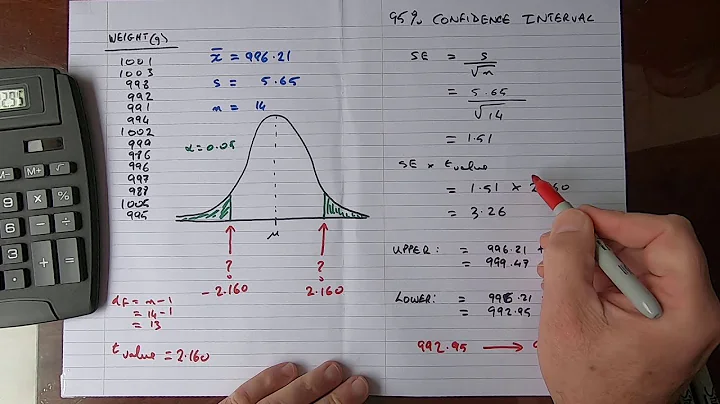 WEIGHT(g)
1001
1003
998
992
991
994
1002
999
986
996
997
988
1005
995
x̄ = 996.21
s = 5.65
n = 14
α = 0.05
μ
?
?
- 2.160
2.160
df = n - 1
= 14 - 1
= 13
t value = 2.160
95% CONFIDENCE INTERVAL
SE = s
√n
= 5.65
√14
= 1.51
SE × t value
= 1.51 × 2.160
= 3.26
UPPER : = 996.21 +
= 999.47
LOWER : = 996.21
= 992.95
992.95 → 9
2.95